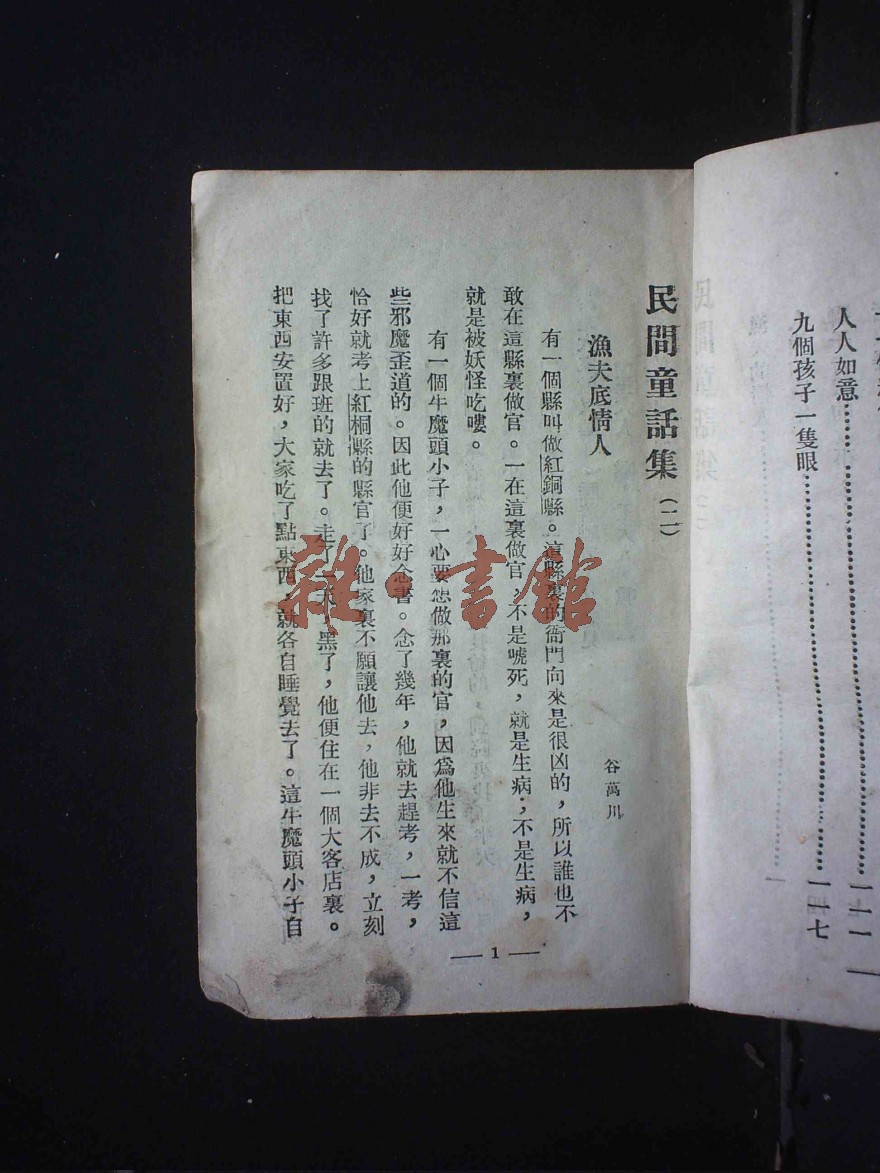 人人如意…………一一一
九個孩子一隻眼…………一一七
民間童話集（二）
漁夫底情人
谷萬川
有一個縣叫做紅銅縣。這縣裏的衙門向來是很凶的，所以誰也不
敢在這縣裏做官。一在這裏做官，不是唬死，就是生病；不是生病，
就是被妖怪吃嘍。
有一個牛魔頭小子，一心要想做那裏的官，因爲他生來就不信這
些邪魔歪道的。因此他便好好念書。念了幾年，他就去趕考，一考，
恰好就考上紅桐縣的縣官了。他家裏不願讓他去，他非去不成，立刻
找了許多跟班的就去了。走了一天，黑了，他便住在一個大客店裏。
把東西安置好，大家吃了點東西，就各自睡覺去了。這牛魔頭小子自
— 1 —
雜·書館